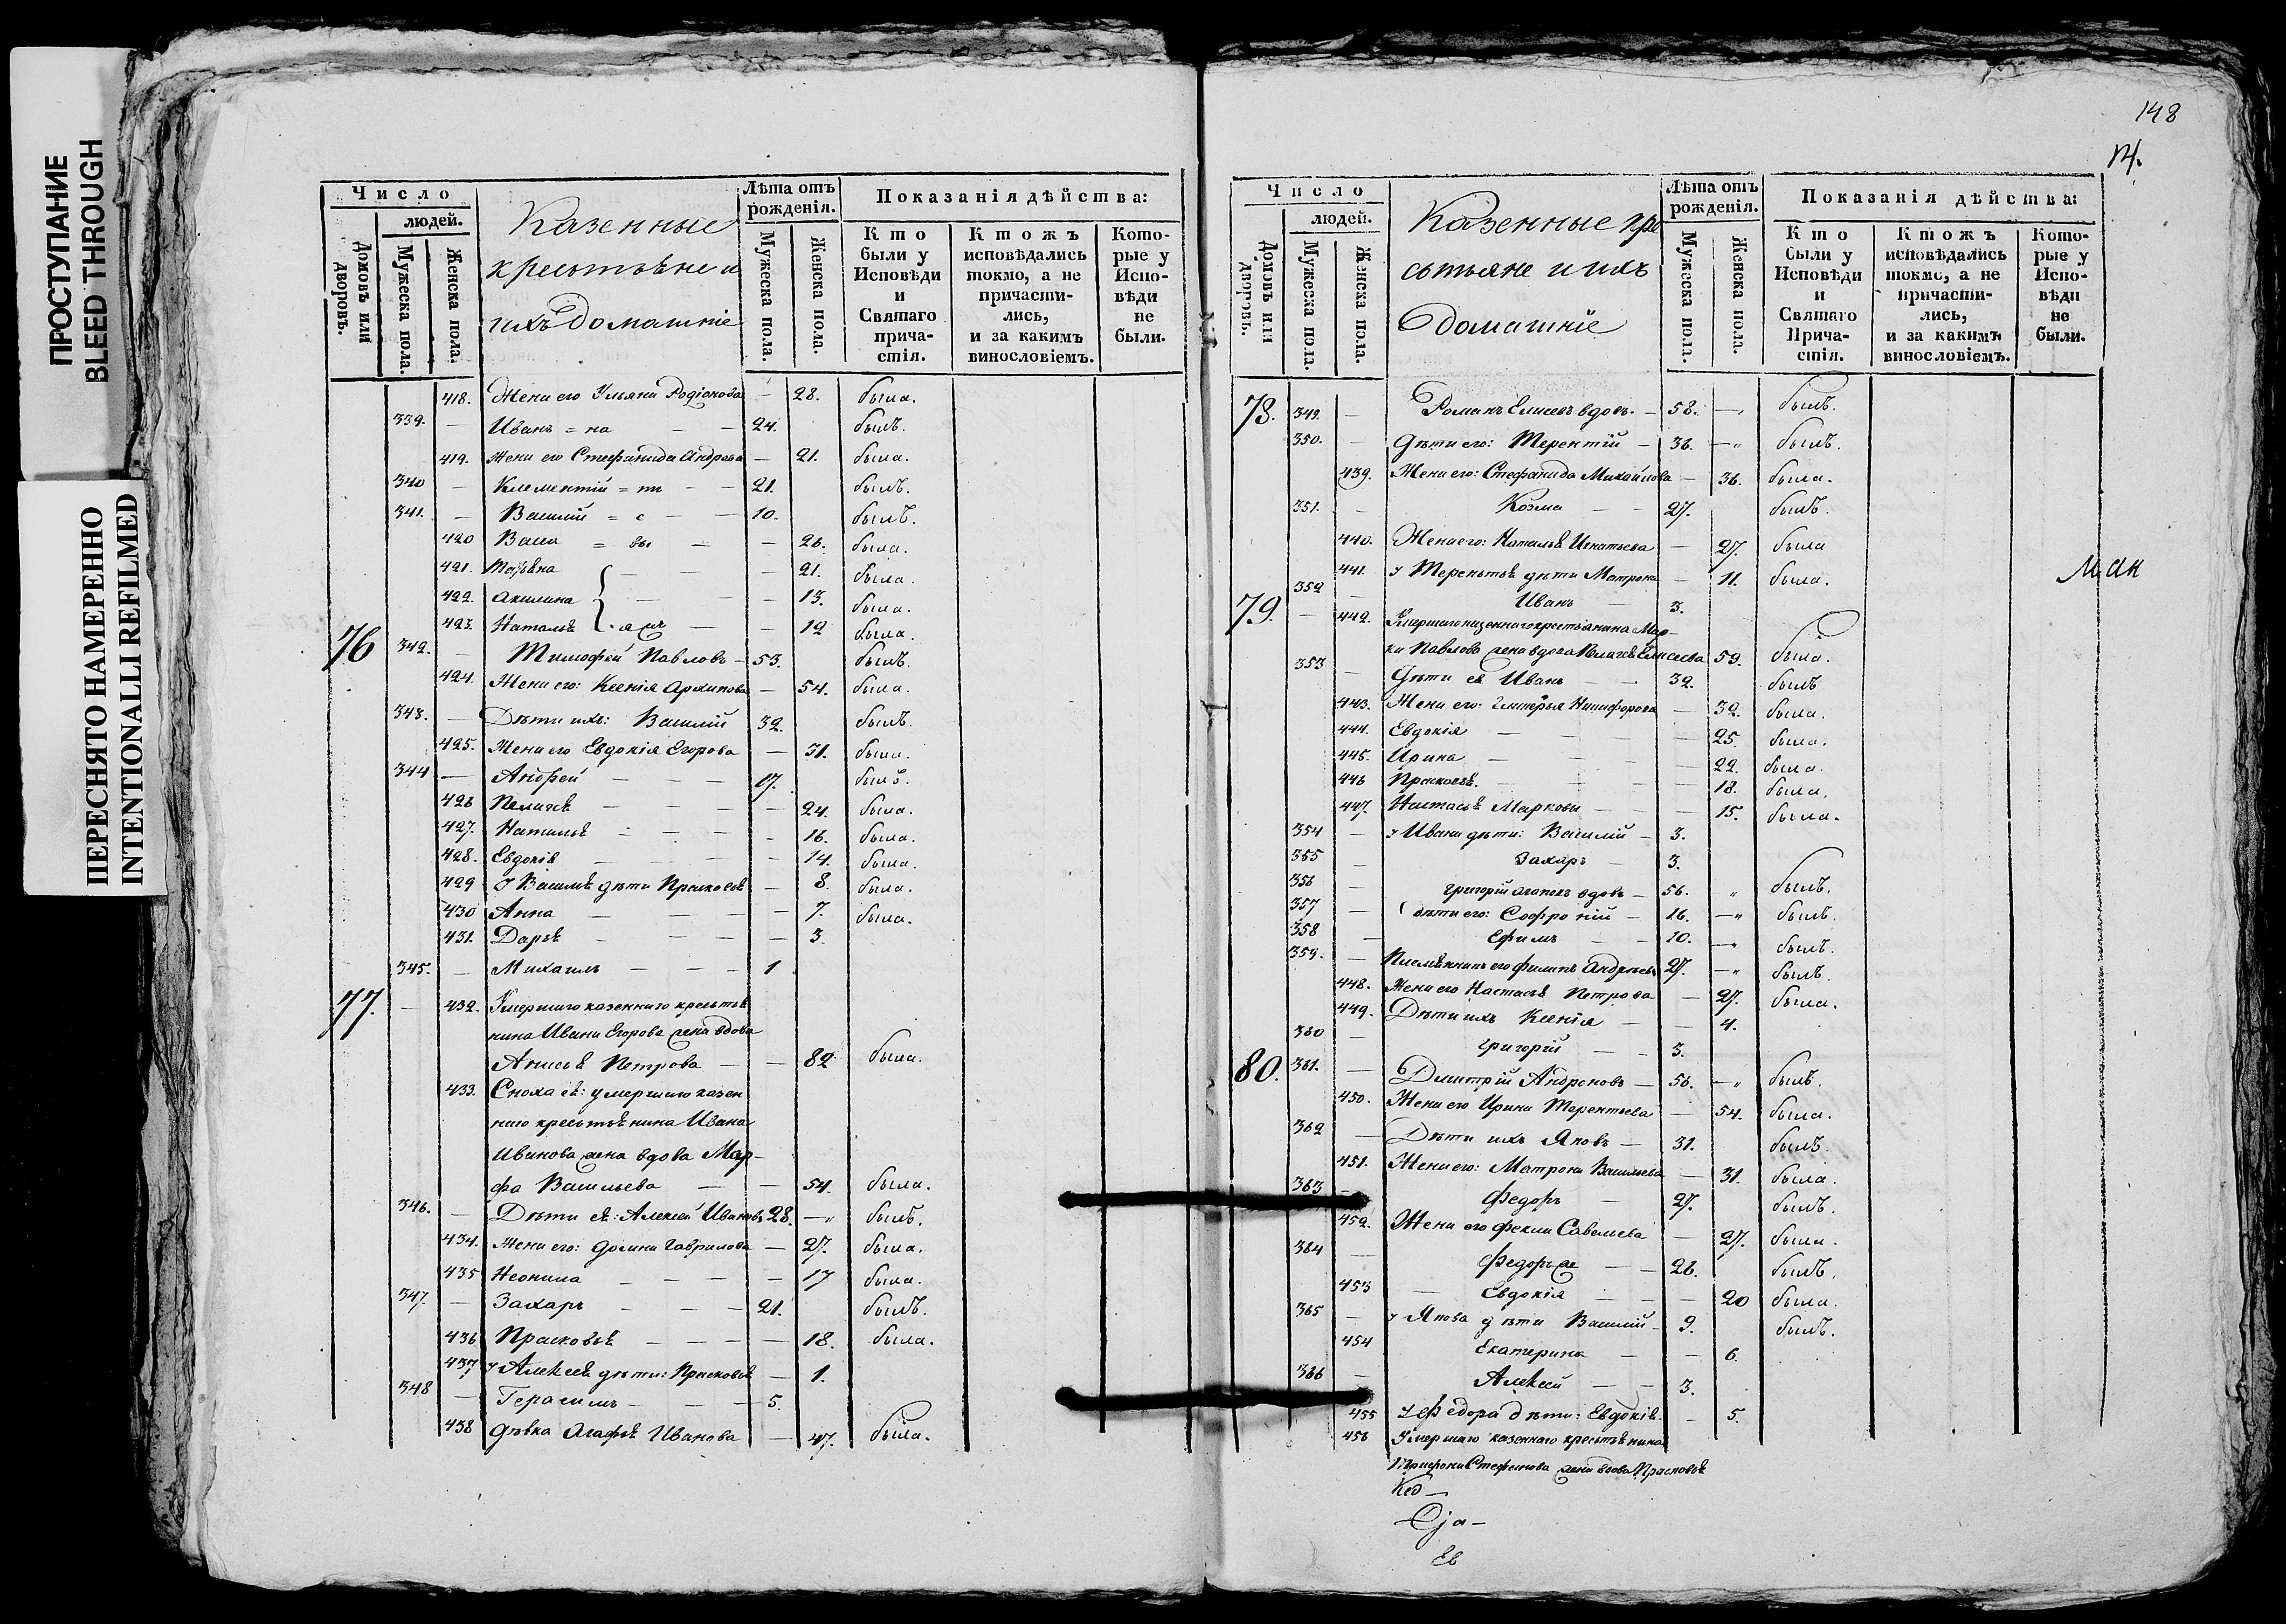 ПРОСТУПАНИЕ
BLEED THROUGH
ПЕРЕСНЯТО НАМЕРЕННО
INTENTIONALLI REFILMED
Число
людей.
Домовъ или дворовъ.
Мужеска пола.
Женска пола.
Казенные
крестьяне и
ихъ домашніе
Лѣта отъ рожденія.
Мужеска пола.
Женска пола.
Показанія дѣйства:
Кто были у Исповѣди и Святаго причастія.
Ктожъ исповѣдались токмо, а не причастились, и за какимъ винословіемъ.
Которые у Исповѣди не были.
418. Жена его Ульяна Родіонова — 28. была.
339. — Иванъ = на — — 24. былъ.
419. Жена его Стефанида Андреева — 21. была.
340 — Клементій = ти — — 21. былъ.
341. — Василій = с — — 10. былъ.
420 Васса = вы — — 26. была.
421. Татьяна — — — 21. была.
422. Акилина — — — 13. была.
423. Наталья — — 12 была.
76 342. — Тимофей Павловъ — 53. былъ.
424. Жена его: Ксенія Архипова — 54. была.
343. — Дѣти ихъ: Василій 32. былъ.
425. Жена его Евдокія Егорова — 31. была.
344 — Андрей — — — 17. былъ.
426 Пелагея — — — — 24. была.
427. Наталья — — — — 16. была.
428. Евдокія — — — — 14. была.
429 У Василья дѣти Прасковья — 8. была.
430 Анна — — — — 7. была.
431. Дарья — — — — 3.
345. — Михаилъ — — — 1
77. — 432. Умершаго казеннаго крестья
нина Ивана Егорова жена вдова
Анисья Петрова — — 82 была.
433. Сноха ея: умершаго казен
наго крестьянина Ивана
Иванова жена вдова Мар-
фа Васильева — — 54. была.
346. — Дѣти ея: Алексей Ивановъ 28. — былъ.
434. Жена его: Домна Гаврилова — 27. была.
435 Неонила — — — — 17 была.
347. — Захаръ — — — 21. былъ.
436 Прасковья — — — — 18. была.
437 у Алексея дѣти: Прасковья — 1.
348 — Герасимъ — — — 5.
438 дѣвка Агафья Иванова — 47. была.
148
14.
Число
людей.
Домовъ или дворовъ.
Мужеска пола.
Женска пола.
Казенные кре
стьяне и ихъ
домашніе
Лѣта отъ рожденія.
Мужеска пола.
Женска пола.
Показанія дѣйства:
Кто были у Исповѣди и Святаго Причастія.
Ктожъ исповѣдались токмо, а не причастились, и за какимъ винословіемъ.
Которые у Исповѣди не были.
78. 349. — Романъ Елисеевъ вдовъ. — 58. — былъ.
350. — Дѣти его: Терентій — 36. — былъ.
439. Жена его: Стефанида Михайлова — 36. была.
351. — Козма — — 27. былъ.
440. Жена его: Наталья Игнатьева — 27. была
441. у Терентья дѣти Матрона — 11. была.
352 — Иванъ — 3.
79. — 442. Умершаго казеннаго крестьянина Мар-
ки Павлова жена вдова Пелагея Елисеева 59. была.
353 — Дѣти ея Иванъ — — 32. былъ
443. Жена его: Никифорова — 32. была.
444. Евдокія — — — 25. была.
445. Ирина — — — 22. была.
446 Прасковья. — — — 18. была.
447. Настасья Маркова — — 15. была.
354 — у Ивана дѣти: Василій — 3.
355 — Захаръ — 3.
356 — Григорій вдовъ — 56. былъ.
357 — дѣти его: Софроній — 16. — былъ.
358 — Ефимъ — — 10. — былъ.
359. — Племянникъ его Филипъ Андреевъ 27. — былъ.
448. Жена его Настасья Петрова — 27. была.
449. Дѣти ихъ Ксенія — — 4.
360 — Григорій — — 3.
80. 361. — Дмитрій Андроновъ — 56. — былъ.
450. Жена его Ирина Терентьева — 54. была.
362 — Дѣти ихъ Яковъ — 31. былъ.
451. Жена его: Матрона Васильева — 31. была.
363 — Федоръ — 27. былъ.
452. Жена его Фекла Савельева — 27. была.
364 — Федоръ же — — 26. былъ.
453 — Евдокія — — — 20 была.
365 — у Якова дѣти Василій — 9. былъ.
454 Екатерина — — 6.
366 — Алексей — — 3.
455 у Федора дѣти: Евдокія — 5.
456 Умершаго казеннаго крестьянина
Стефанова жена вдова Прасковья